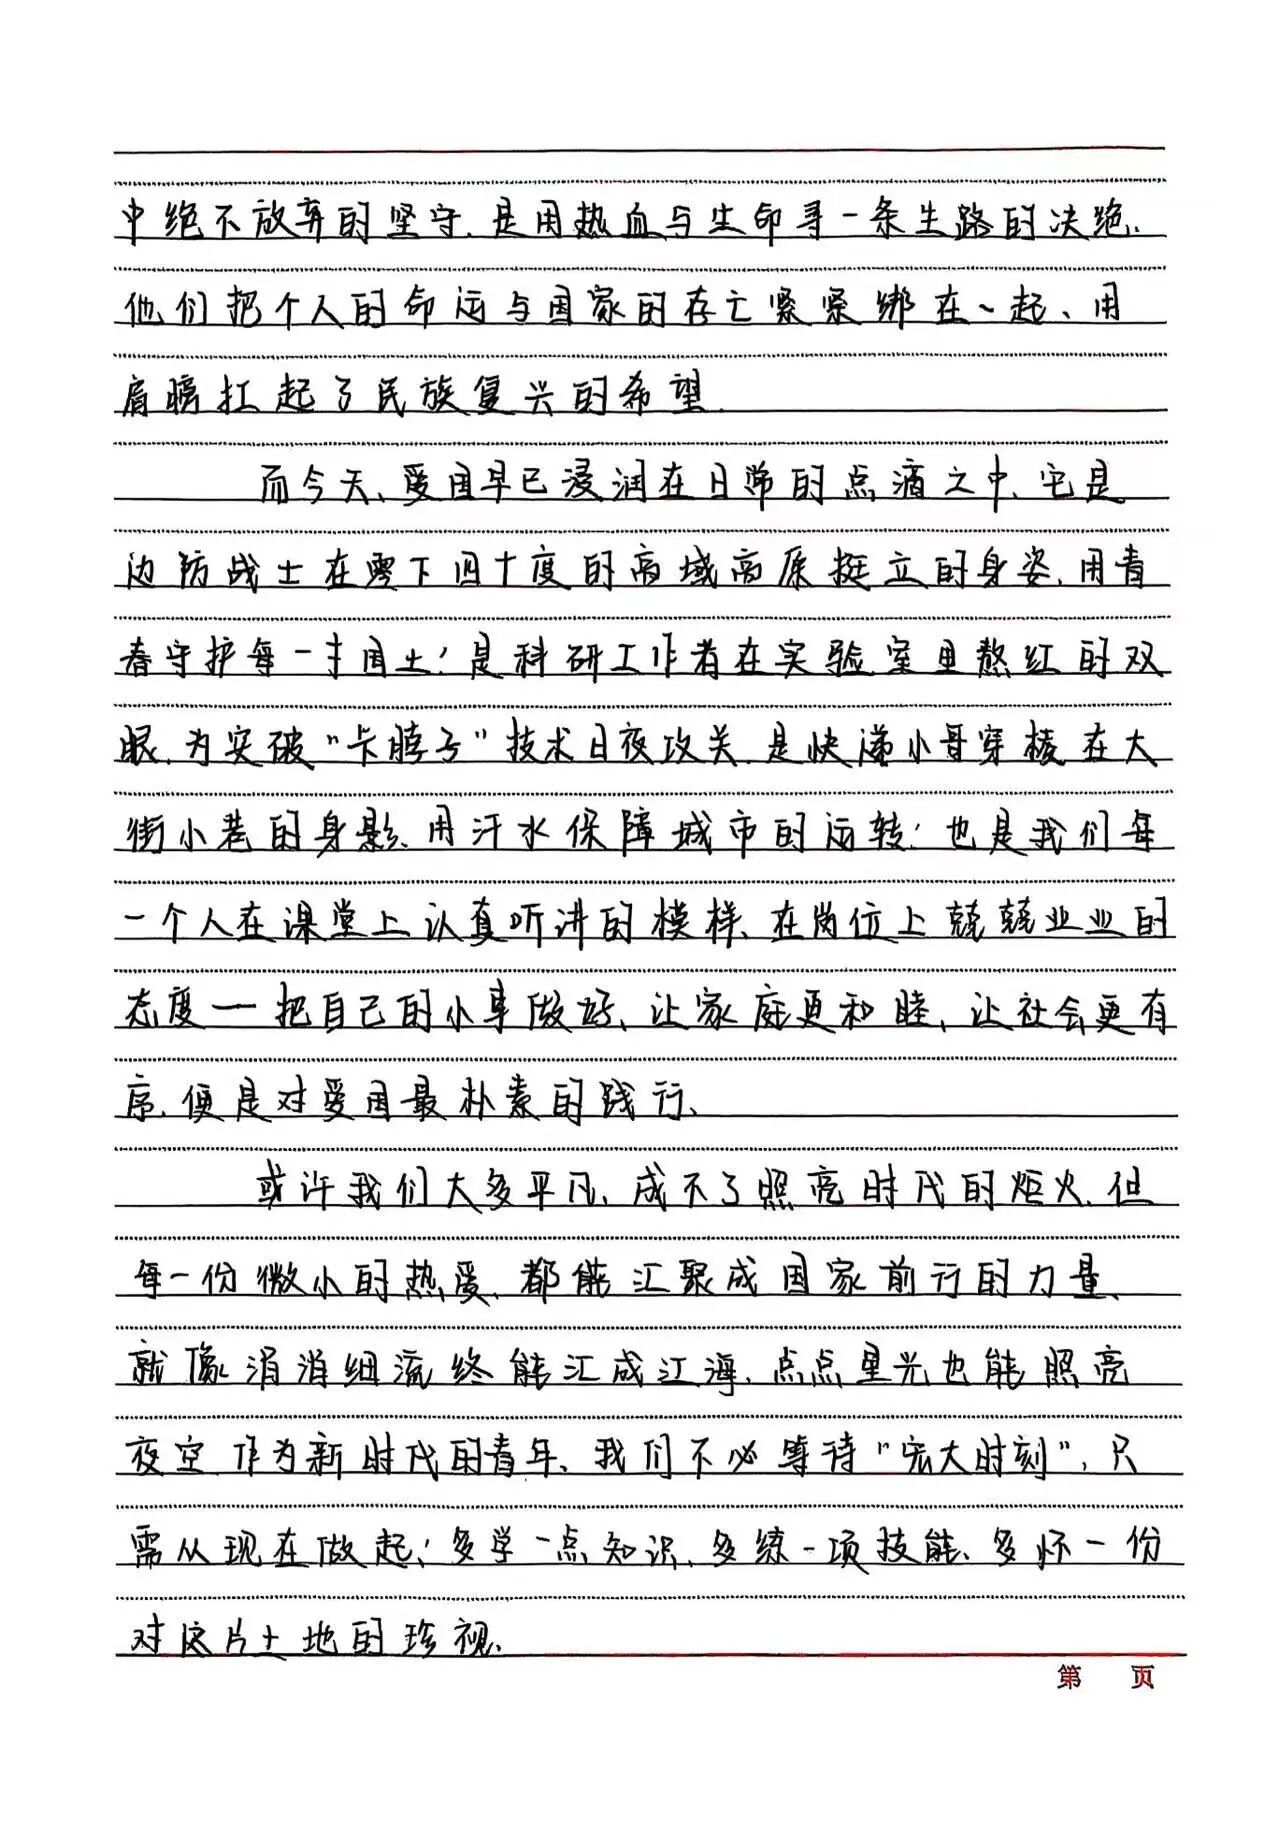 中绝不放弃的坚守、是用热血与生命寻一条生路的决绝、
他们把个人的命运与国家的存亡紧紧绑在一起、用
肩膀扛起了民族复兴的希望.
而今天、爱国早已浸润在日常的点滴之中、它是
边防战士在零下四十度的高域高原挺立的身姿、用青
春守护每一寸国土；是科研工作者在实验室里熬红的双
眼、为突破“卡脖子”技术日夜攻关、是快递小哥穿梭在大
街小巷的身影、用汗水保障城市的运转；也是我们每
一个人在课堂上认真听讲的模样、在岗位上兢兢业业的
态度——把自己的小事做好、让家庭更和睦、让社会更有
序、便是对爱国最朴素的践行、
或许我们大多平凡、成不了照亮时代的炬火、但
每一份微小的热爱、都能汇聚成国家前行的力量、
就像涓涓细流终能汇成江海、点点星光也能照亮
夜空、作为新时代的青年、我们不必等待“宏大时刻”，只
需从现在做起；多学一点知识、多练一项技能、多怀一份
对这片土地的珍视、
第 页